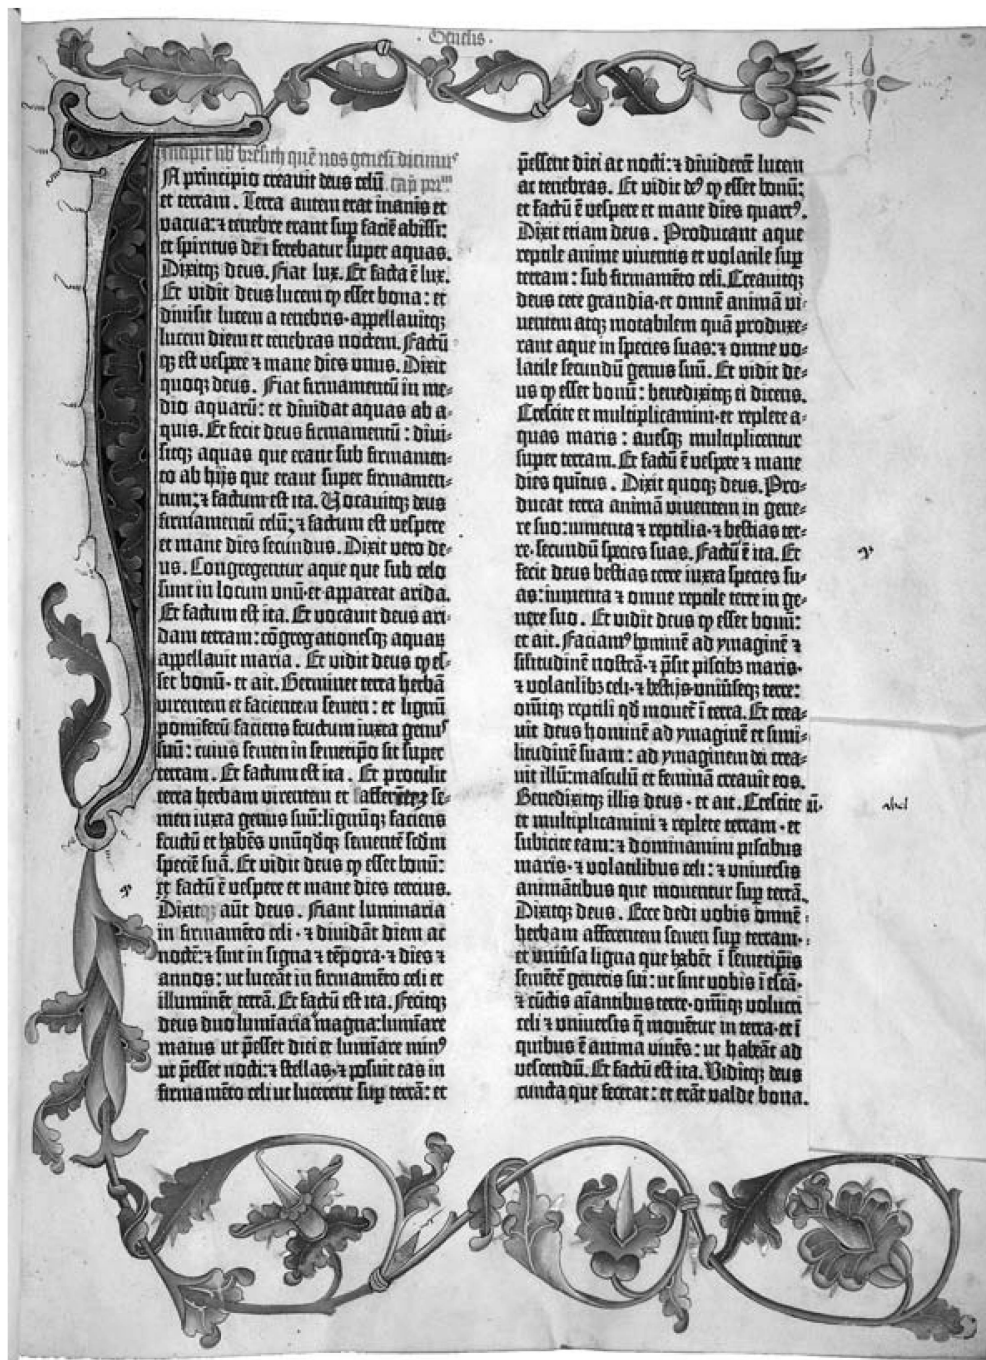 Genesis.
Incipit lib bresith quē nos genesī dicimusꝰ
In principio creauit deus celū cap primm.
et terram. Terra autem erat inanis et
vacua: ⁊ tenebre erant sup faciē abissi:
et spiritus dei ferebatur super aquas.
Dixitqꝫ deus. Fiat lux. Et facta ē lux.
Et vidit deus lucem ꝙ esset bona: et
diuisit lucem a tenebris· appellauitqꝫ
lucem diem et tenebras noctem. Factū
qꝫ est vespere ⁊ mane dies vnus. Dixit
quoqꝫ deus. Fiat firmamentū in me-
dio aquarū: et diuidat aquas ab a-
quis. Et fecit deus firmamentū: diui-
sitqꝫ aquas que erant sub firmamen-
to ab hijs que erant super firmamen-
tum: ⁊ factum est ita. Vocauitqꝫ deus
firmamentū celū: ⁊ factum est vespere
et mane dies secundus. Dixit vero de-
us. Congregentur aque que sub celo
sunt in locum vnū· et appareat arida.
Et factum est ita. Et vocauit deus ari-
dam terram: cōgregationesqꝫ aquaꝝ
appellauit maria. Et vidit deus ꝙ es-
set bonū· et ait. Germinet terra herbā
virentem et facientem semen: et lignū
pomiferū faciens fructum iuxta genusꝰ
suū: cuius semen in semetipo sit super
terram. Et factum est ita. Et protulit
terra herbam virentem et afferētez se-
men iuxta genus suū: lignūqꝫ faciens
fructū et habēs vnūqdqꝫ sementē scdm
speciē suā. Et vidit deus ꝙ esset bonū:
et factū ē vespere et mane dies tercius.
Dixitqꝫ aūt deus. Fiant luminaria
in firmamēto celi· ⁊ diuidāt diem ac
noctē: ⁊ sint in signa ⁊ tēpora· ⁊ dies ⁊
annos: ut luceāt in firmamēto celi et
illuminēt terrā. Et factū est ita. Fecitqꝫ
deus duo lumīaria magna: lumīare
maius ut p̄esset diei et lumīare minꝰ
ut p̄esset nocti: ⁊ stellas· ⁊ posuit eas in
firmamēto celi ut lucerent sup terrā: et
p̄essent diei ac nocti: ⁊ diuiderēt lucem
ac tenebras. Et vidit deꝰ ꝙ esset bonū:
et factū ē vespere et mane dies quartꝰ.
Dixit etiam deus. Producant aque
reptile anime viuentis et volatile sup
terram: sub firmamēto celi. Creauitqꝫ
deus cete grandia· et omnē animā vi-
uentem atqꝫ motabilem quā produxe-
rant aque in species suas: ⁊ omne vo-
latile secundū genus suū. Et vidit de-
us ꝙ esset bonū: benedixitqꝫ ei dicens.
Crescite et multiplicamini· et replete a-
quas maris: auesqꝫ multiplicentur
super terram. Et factū ē vespere ⁊ mane
dies quītus. Dixit quoqꝫ deus. Pro-
ducat terra animā viuentem in gene-
re suo: iumenta ⁊ reptilia· ⁊ bestias ter-
re· secundū species suas. Factū ē ita. Et
fecit deus bestias terre iuxta species su-
as: iumenta ⁊ omne reptile terre in ge-
nere suo. Et vidit deus ꝙ esset bonū:
et ait. Faciamꝰ hominē ad ymaginē ⁊
silitudinē nostrā· ⁊ p̄sit piscibꝫ maris·
⁊ volatilibꝫ celi· ⁊ bestijs vniūseqꝫ terre:
omīqꝫ reptili qd mouet ī terra. Et crea-
uit deus hominē ad ymaginē et simi-
litudinē suam: ad ymaginem dei crea-
uit illū: masculū et feminā creauit eos.
Benedixitqꝫ illis deus· et ait. Crescite
et multiplicamini ⁊ replete terram· et
subicite eam: ⁊ dominamini piscibus
maris· ⁊ volatilibus celi: ⁊ vniuersis
animātibus que mouentur sup terrā.
Dixitqꝫ deus. Ecce dedi vobis omnē
herbam afferentem semen sup terram·
et vniūsa ligna que habēt ī semetipis
semētē generis sui: ut sint vobis ī escā·
⁊ cūctis aīantibus terre· omīqꝫ volucri
celi ⁊ vniuersis q̄ mouētur in terra· et ī
quibus ē anima viuēs: ut habeāt ad
vescendū. Et factū est ita. Viditqꝫ deus
cuncta que fecerat: et erāt valde bona.